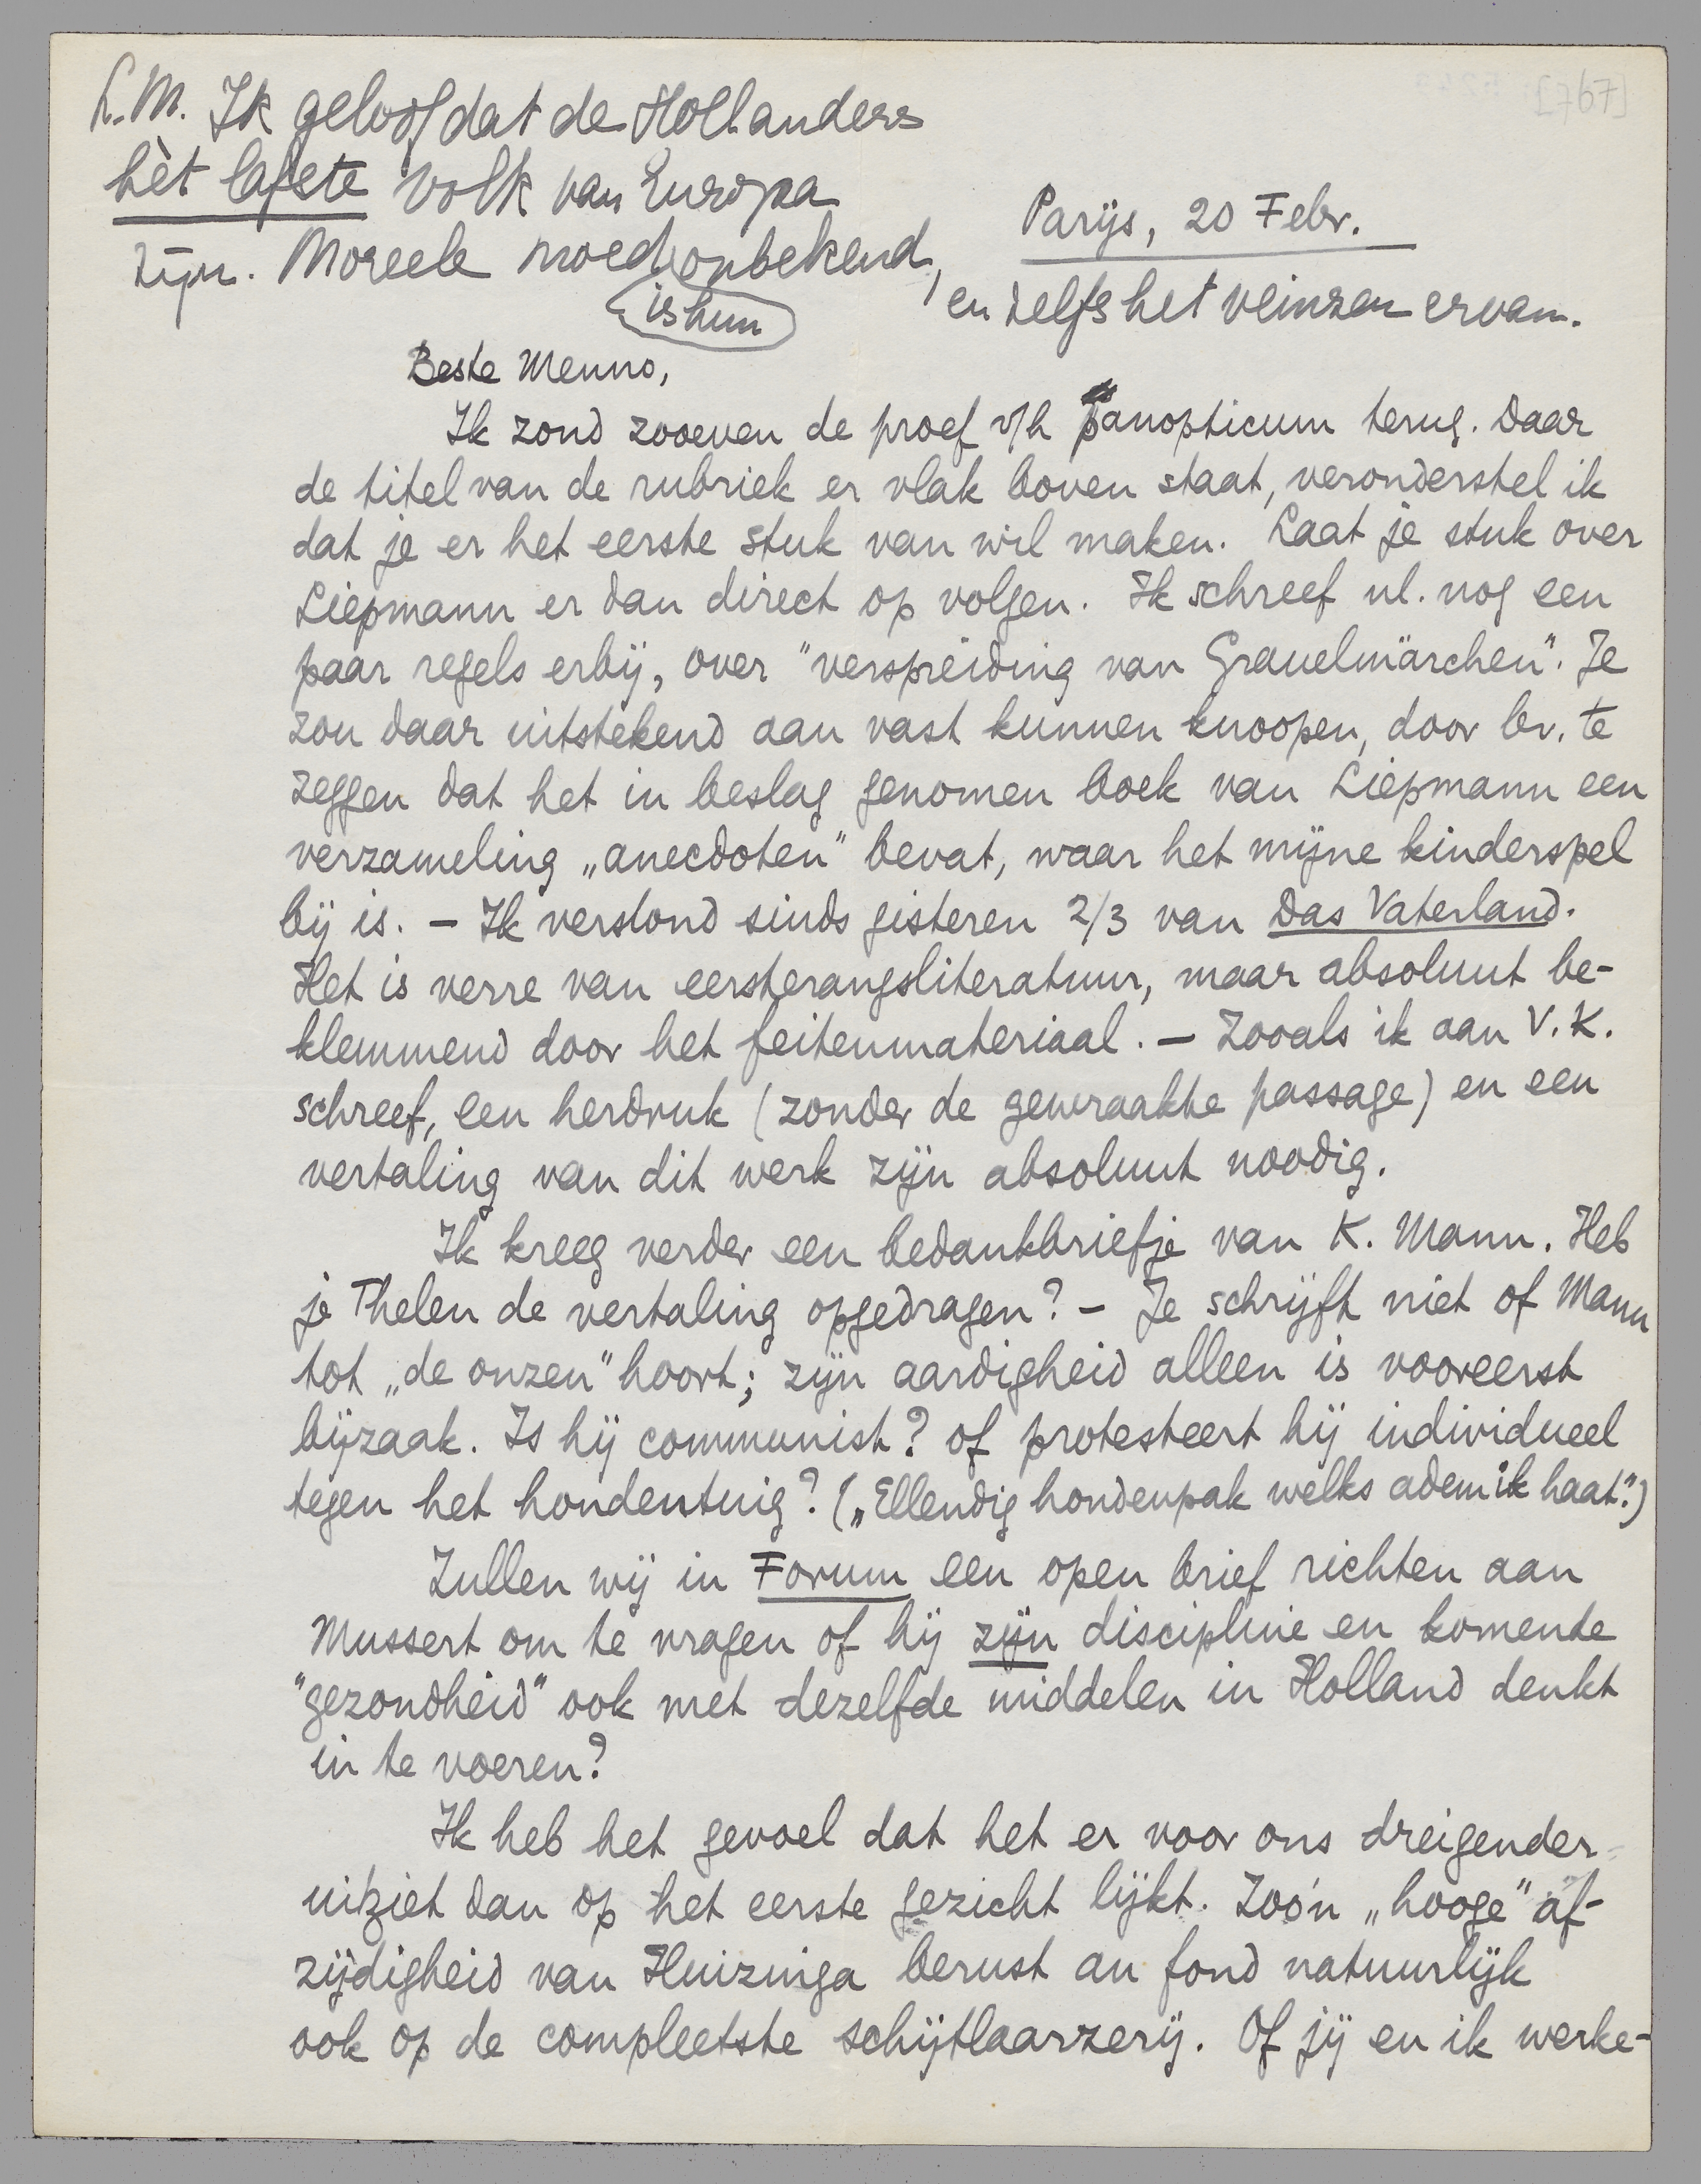 L.M. Ik geloof dat de Hollanders
hèt lafste volk van Europa
zijn. Moreele moed is hun onbekend,
en zelfs het veinzen ervan.
Parijs, 20 Febr.
Beste Menno,
Ik zond zooeven de proef v/h panopticum terug. Daar
de titel van de rubriek er vlak boven staat, veronderstel ik
dat je er het eerste stuk van wil maken. Laat je stuk over
Liepmann er dan direct op volgen. Ik schreef nl. nog een
paar regels erbij, over "verspreiding van Grauelmärchen". Je
zou daar uitstekend aan vast kunnen knoopen, door bv. te
zeggen dat het in beslag genomen boek van Liepmann een
verzameling „anecdoten" bevat, waar het mijne kinderspel
bij is. — Ik verslond sinds gisteren 2/3 van Das Vaterland.
Het is verre van eersterangsliteratuur, maar absoluut be-
klemmend door het feitenmateriaal. — Zooals ik aan V.K.
schreef, een herdruk (zonder de gewraakte passage) en een
vertaling van dit werk zijn absoluut noodig.
Ik kreeg verder een bedankbriefje van K. Mann. Heb
je Thelen de vertaling opgedragen? — Je schrijft niet of Mann
tot „de onzen" hoort; zijn aardigheid alleen is vooreerst
bijzaak. Is hij communist? of protesteert hij individueel
tegen het hondentuig? („Ellendig hondenpak welks adem ik haat".)
Zullen wij in Forum een open brief richten aan
Mussert om te vragen of hij zijn discipline en komende
"gezondheid" ook met dezelfde middelen in Holland denkt
in te voeren?
Ik heb het gevoel dat het er voor ons dreigender
uitziet dan op het eerste gezicht lijkt. Zoo'n „hooge" af-
zijdigheid van Huizinga berust au fond natuurlijk
ook op de compleetste schijtlaarzerij. Of jij en ik werke-